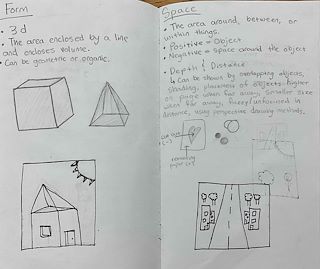 Form
• 3d
• The area enclosed by a line
and encloses volume.
• Can be geometric or organic.
Space
• The area around, between, or
within things.
• Positive = Object
• Negative = space around the object
• Depth & Distance
↳ Can be shown by overlapping objects,
shading, placement of objects higher
on plane when far away, smaller size
when far away, fuzzy/unfocused in
distance, using perspective drawing methods.
cut out
(-)
remaining
paper (+)